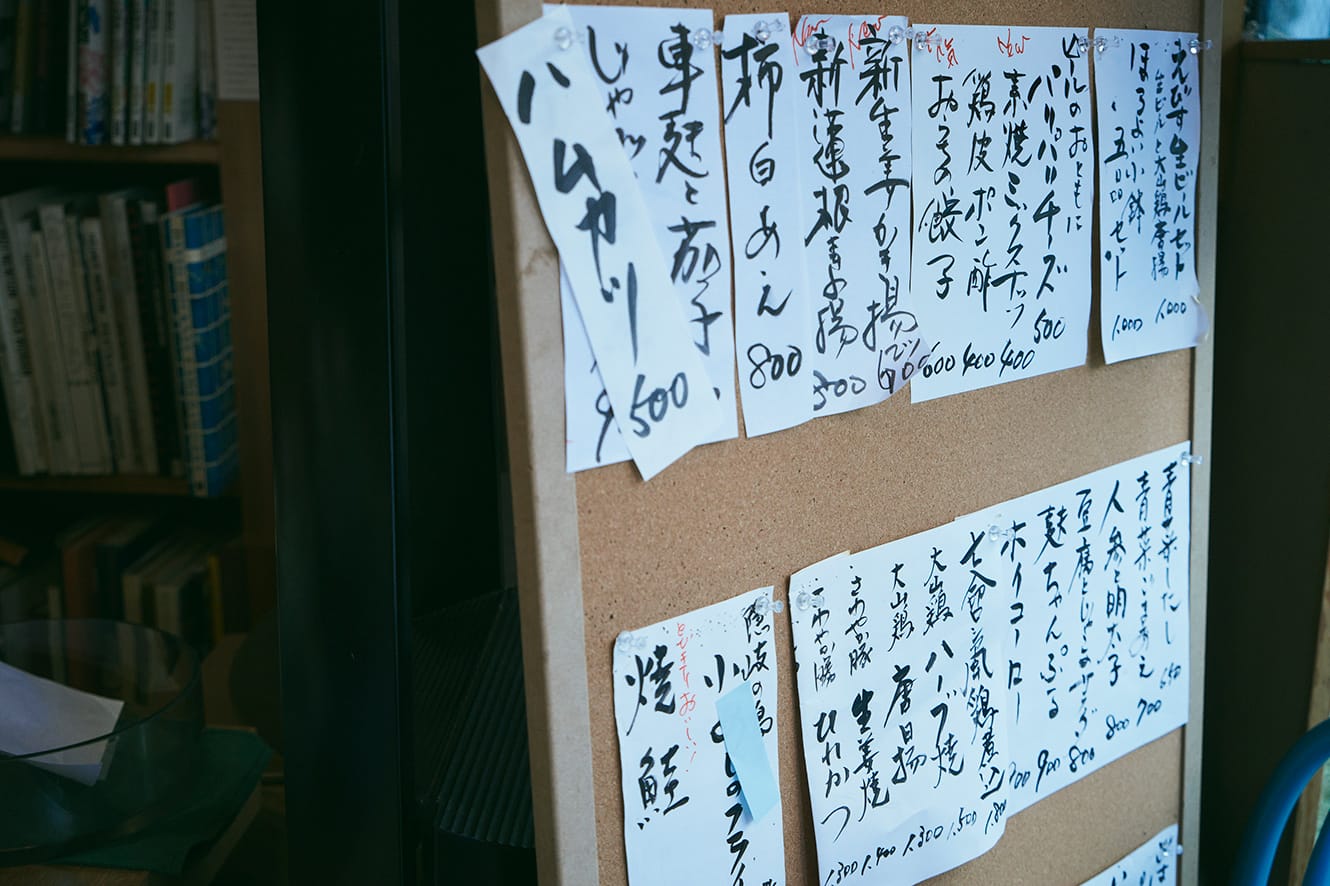 えびす生ビールセット
生ビールと大山鶏唐揚 1,000
ほろよい小鉢
五品セット 1,000
ビールのおともに
パリパリチーズ 500
New
素焼ミックスナッツ 400
鶏皮ポン酢 400
人気
おろその餃子 600
New
新生姜かき揚
New
新蓮根
揚 500
柿白あえ 800
車麩と茄子
じゃが
ハムカツ 500
青菜ひたし 650
青菜ごまあえ 700
人参と明太子 800
豆腐とじゃこ 800
麩ちゃんぷる 900
ホイコーロー
鶏煮込
大山鶏 ハーブ焼 1,500
大山鶏 唐揚 1,300
さわやか豚 生姜焼 1,400
さわやか豚 ひれかつ 1,300
隠岐の島
小
のフライ
とびきりおいしい
焼鮭